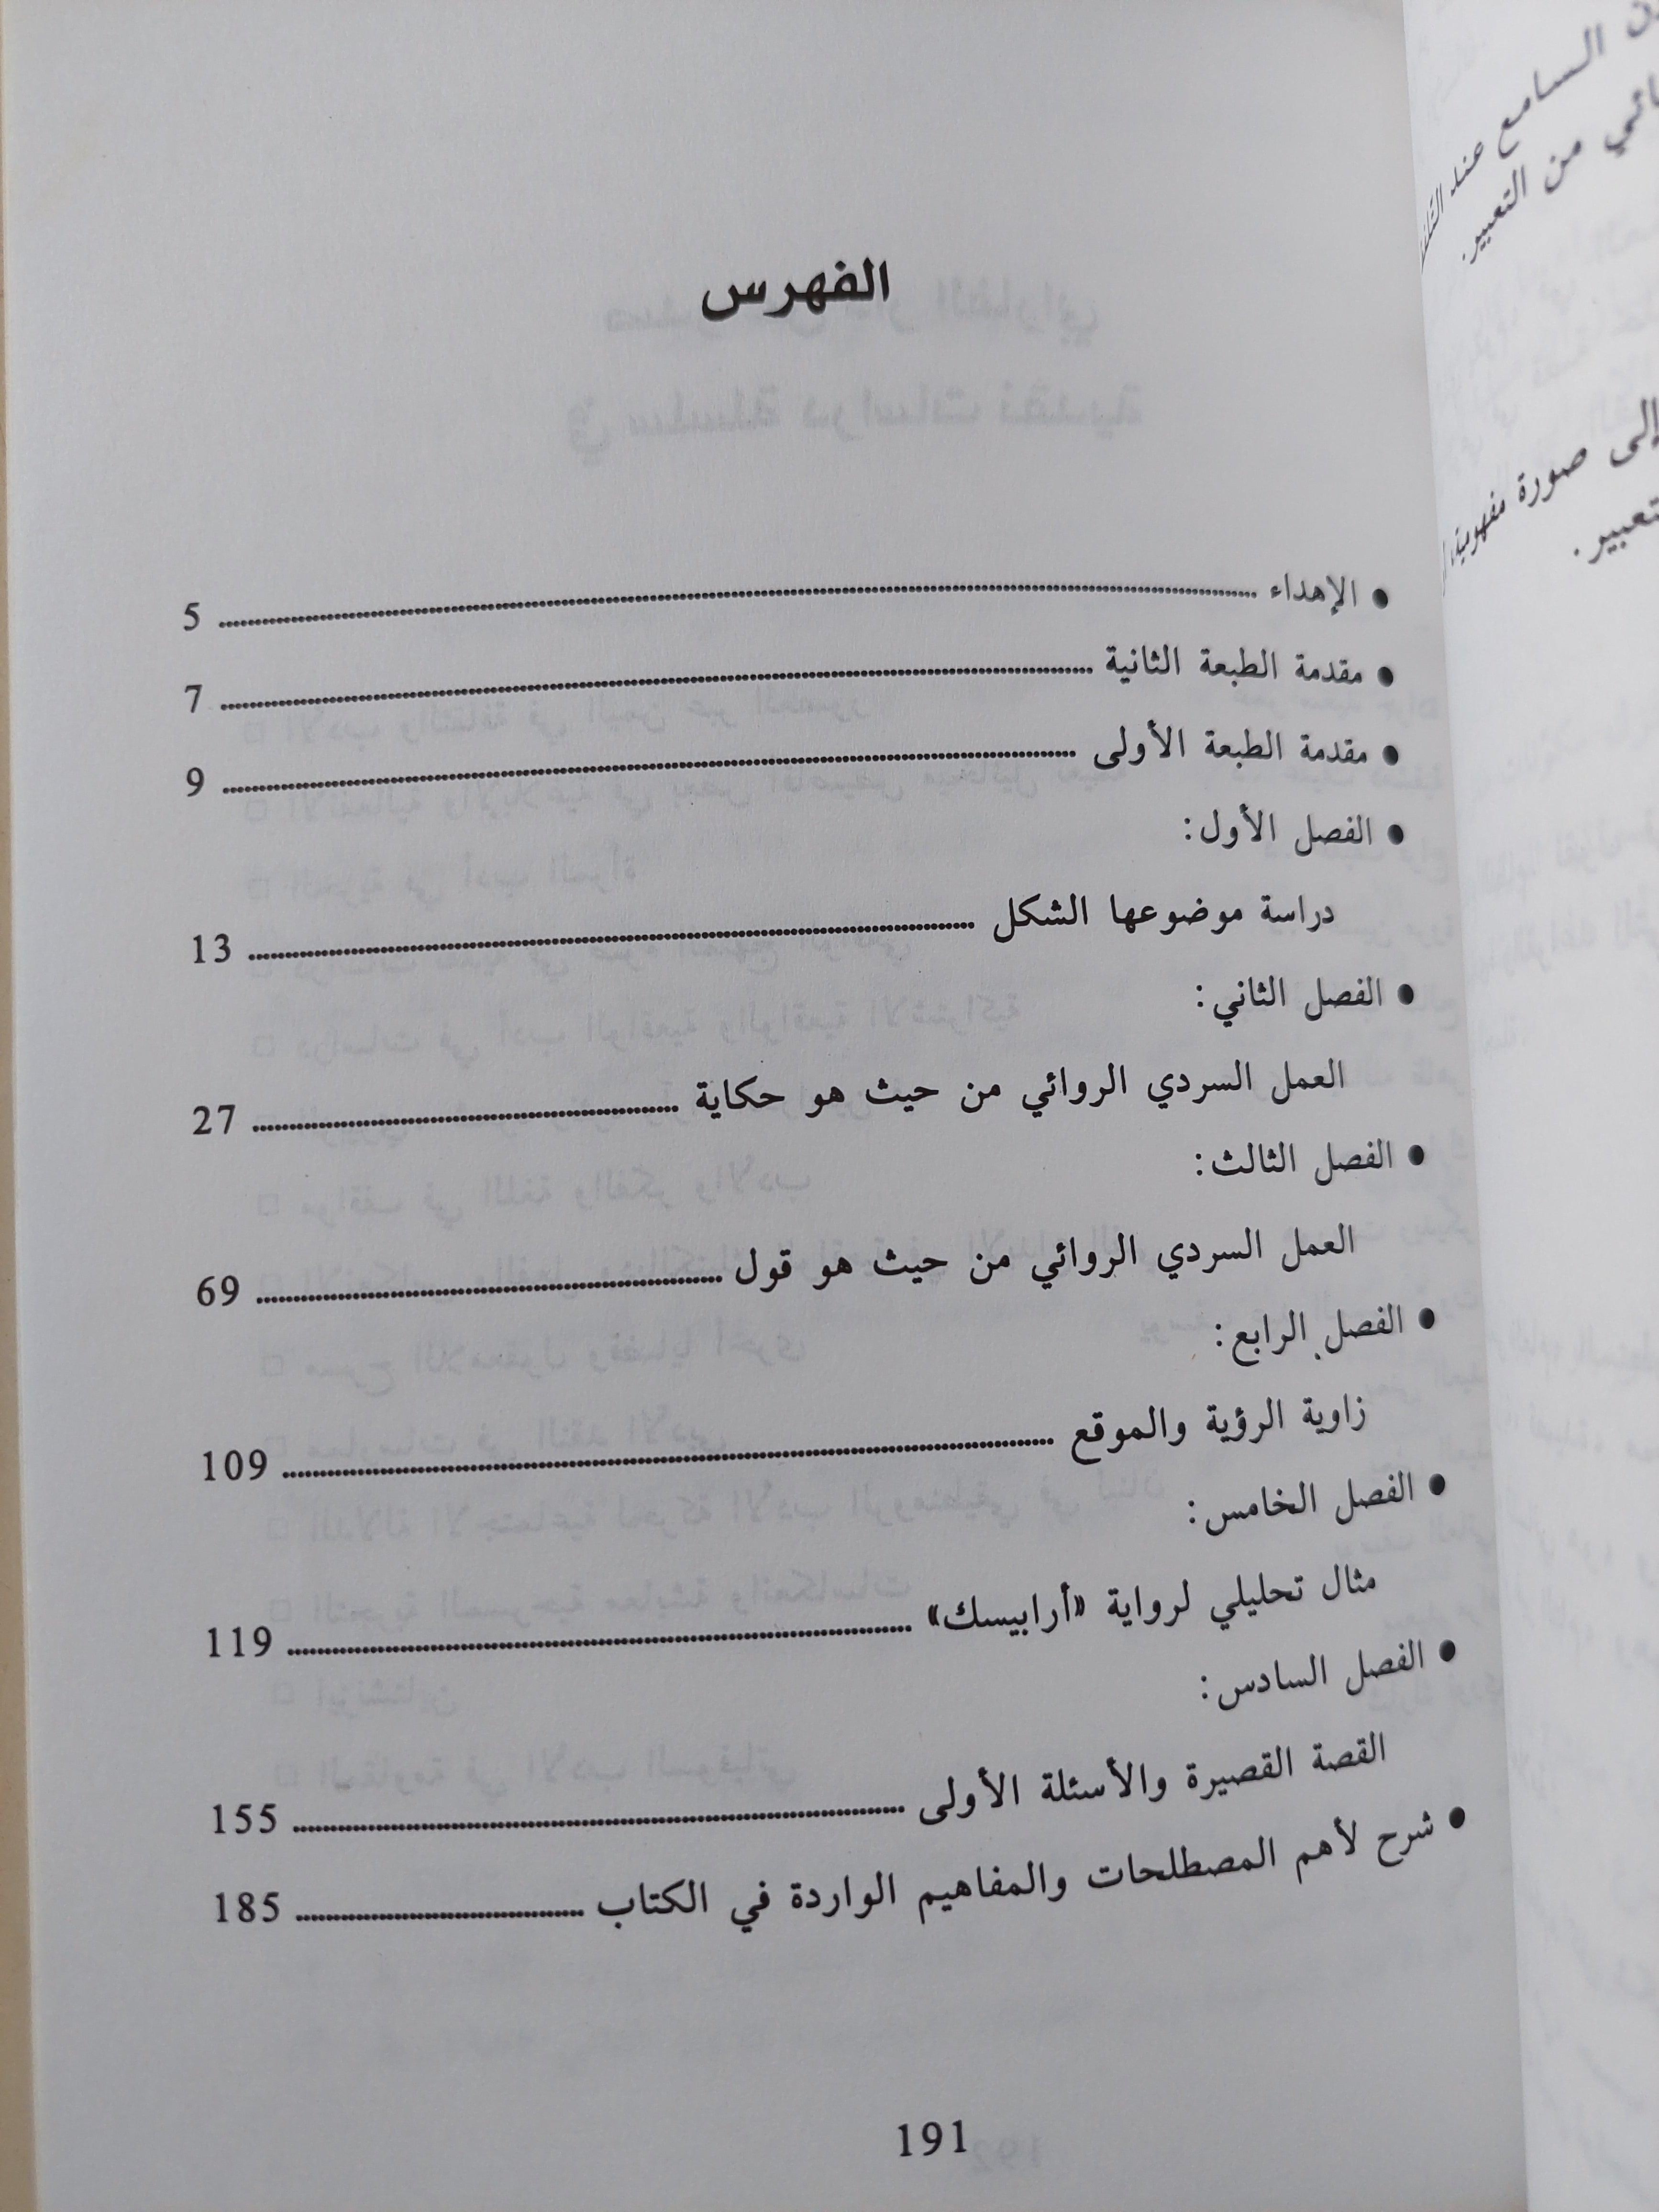 الفهرس
• الإهداء ........ 5
• مقدمة الطبعة الثانية ........ 7
• مقدمة الطبعة الأولى ........ 9
• الفصل الأول:
دراسة موضوعها الشكل ........ 13
• الفصل الثاني:
العمل السردي الروائي من حيث هو حكاية ........ 27
• الفصل الثالث:
العمل السردي الروائي من حيث هو قول ........ 69
• الفصل الرابع:
زاوية الرؤية والموقع ........ 109
• الفصل الخامس:
مثال تحليلي لرواية «أرابيسك» ........ 119
• الفصل السادس:
القصة القصيرة والأسئلة الأولى ........ 155
• شرح لأهم المصطلحات والمفاهيم الواردة في الكتاب ........ 185
191
السامع عند
من التعبير.
إلى صورة مفهومية